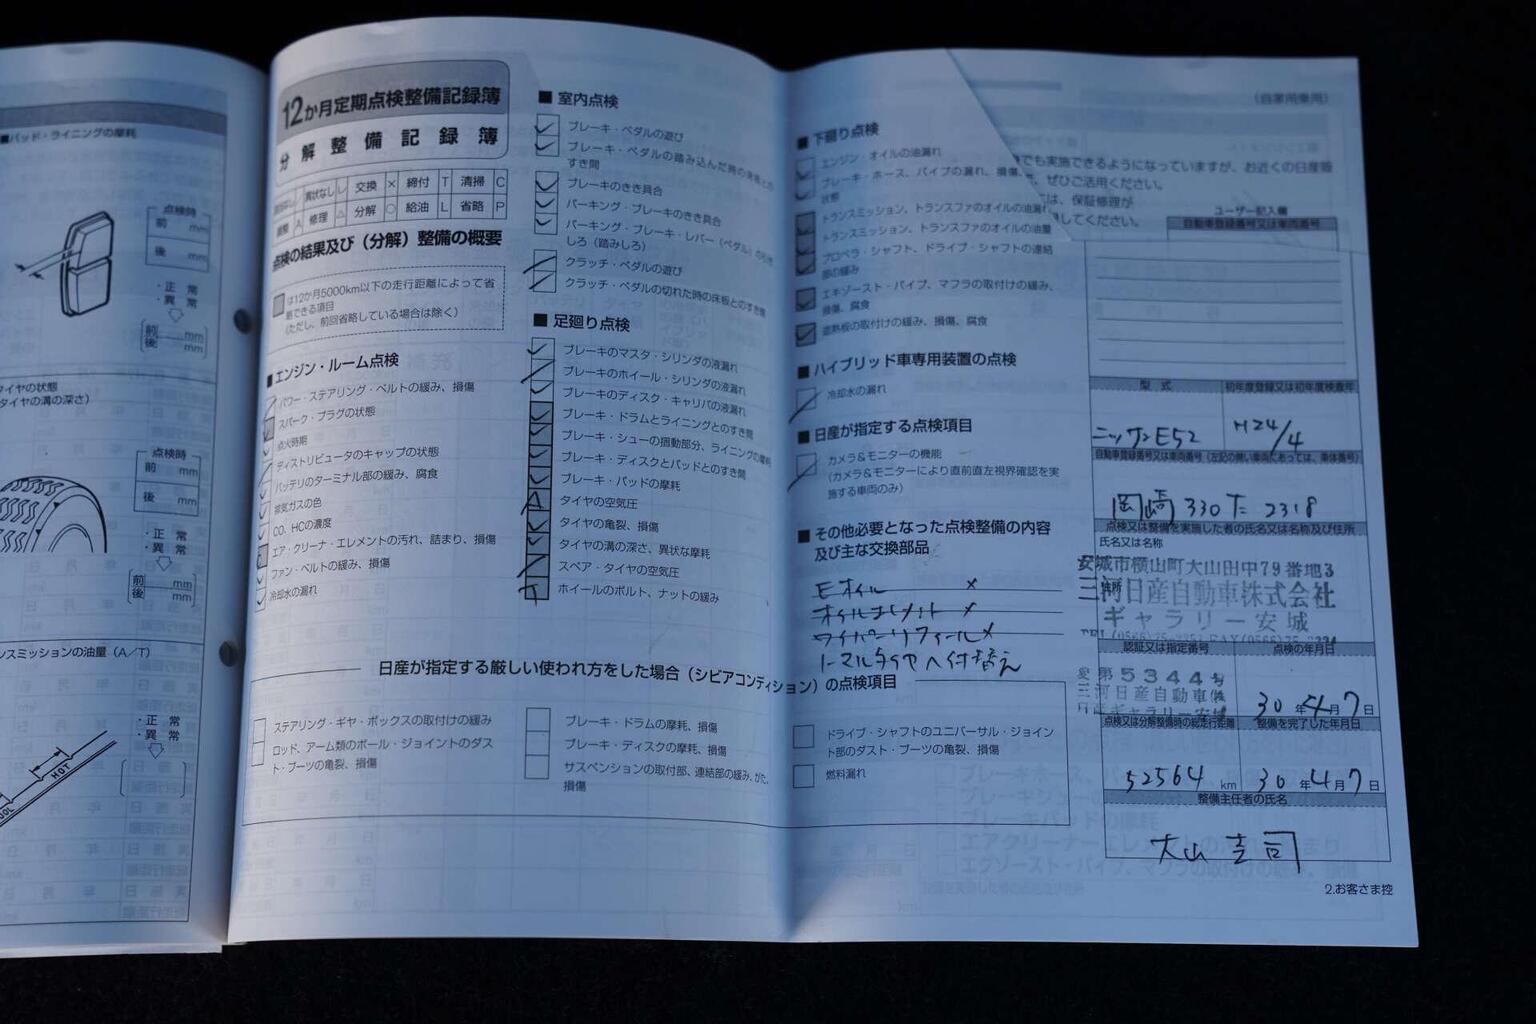 ■パッド・ライニングの摩耗
点検時
前 mm
後 mm
・正 常
・異 常
前 mm
後 mm
タイヤの状態
タイヤの溝の深さ）
点検時
前 mm
後 mm
・正 常
・異 常
前 mm
後 mm
ンスミッションの油量（A／T）
・正 常
・異 常
HOT
12か月定期点検整備記録簿
分解整備記録簿
異状なし レ 交換 × 締付 T 清掃 C
調整 A 修理 △ 分解 ○ 給油 L 省略 P
点検の結果及び（分解）整備の概要
は12か月5000km以下の走行距離によって省
略できる項目
（ただし、前回省略している場合は除く）
■エンジン・ルーム点検
パワー・ステアリング・ベルトの緩み、損傷
スパーク・プラグの状態
点火時期
ディストリビュータのキャップの状態
バッテリのターミナル部の緩み、腐食
排気ガスの色
CO、HCの濃度
エア・クリーナ・エレメントの汚れ、詰まり、損傷
ファン・ベルトの緩み、損傷
冷却水の漏れ
■ 室内点検
ブレーキ・ペダルの遊び
ブレーキ・ペダルの踏み込んだ時の床板との
すき間
ブレーキのきき具合
パーキング・ブレーキのきき具合
パーキング・ブレーキ・レバー（ペダル）の引き
しろ（踏みしろ）
クラッチ・ペダルの遊び
クラッチ・ペダルの切れた時の床板とのすき間
■ 足廻り点検
ブレーキのマスタ・シリンダの液漏れ
ブレーキのホイール・シリンダの液漏れ
ブレーキのディスク・キャリパの液漏れ
ブレーキ・ドラムとライニングとのすき間
ブレーキ・シューの摺動部分、ライニングの摩耗
ブレーキ・ディスクとパッドとのすき間
ブレーキ・パッドの摩耗
タイヤの空気圧
タイヤの亀裂、損傷
タイヤの溝の深さ、異状な摩耗
スペア・タイヤの空気圧
ホイールのボルト、ナットの緩み
■ 下廻り点検
エンジン・オイルの油漏れ
ブレーキ・ホース、パイプの漏れ、損傷、
状態
トランスミッション、トランスファのオイルの油漏れ
トランスミッション、トランスファのオイルの油量
プロペラ・シャフト、ドライブ・シャフトの連結
部の緩み
エキゾースト・パイプ、マフラの取付けの緩み、
損傷、腐食
遮熱板の取付けの緩み、損傷、腐食
■ ハイブリッド車専用装置の点検
冷却水の漏れ
■ 日産が指定する点検項目
カメラ＆モニターの機能
（カメラ＆モニターにより直前直左視界確認を実
施する車両のみ）
■ その他必要となった点検整備の内容
及び主な交換部品
Eオイル ×
オイルエレメント ×
ワイパーリフィール ×
ノーマルタイヤへ付替え
日産が指定する厳しい使われ方をした場合（シビアコンディション）の点検項目
ステアリング・ギヤ・ボックスの取付けの緩み
ロッド、アーム類のボール・ジョイントのダス
ト・ブーツの亀裂、損傷
ブレーキ・ドラムの摩耗、損傷
ブレーキ・ディスクの摩耗、損傷
サスペンションの取付部、連結部の緩み、がた、
損傷
ドライブ・シャフトのユニバーサル・ジョイン
ト部のダスト・ブーツの亀裂、損傷
燃料漏れ
（自家用乗用）
でも実施できるようになっていますが、お近くの日産販
ぜひご活用ください。
は、保証修理が
してください。
ユーザー記入欄
自動車登録番号又は車両番号
型 式 初年度登録又は初年度検査年
ニッサンE52 H24/4
自動車登録番号又は車両番号（左記の無い車両にあっては、車体番号）
岡崎 330 た 2318
点検又は整備を実施した者の氏名又は名称及び住所
氏名又は名称
安城市横山町大山田中79番地3
住所
三河日産自動車株式会社
ギャラリー安城
認証又は指定番号 点検の年月日
愛第5344号
三河日産自動車㈱
日産ギャラリー安城
30 年 4 月 7 日
点検又は分解整備時の総走行距離 整備を完了した年月日
52564 km 30 年 4 月 7 日
整備主任者の氏名
大山 圭司
2.お客さま控